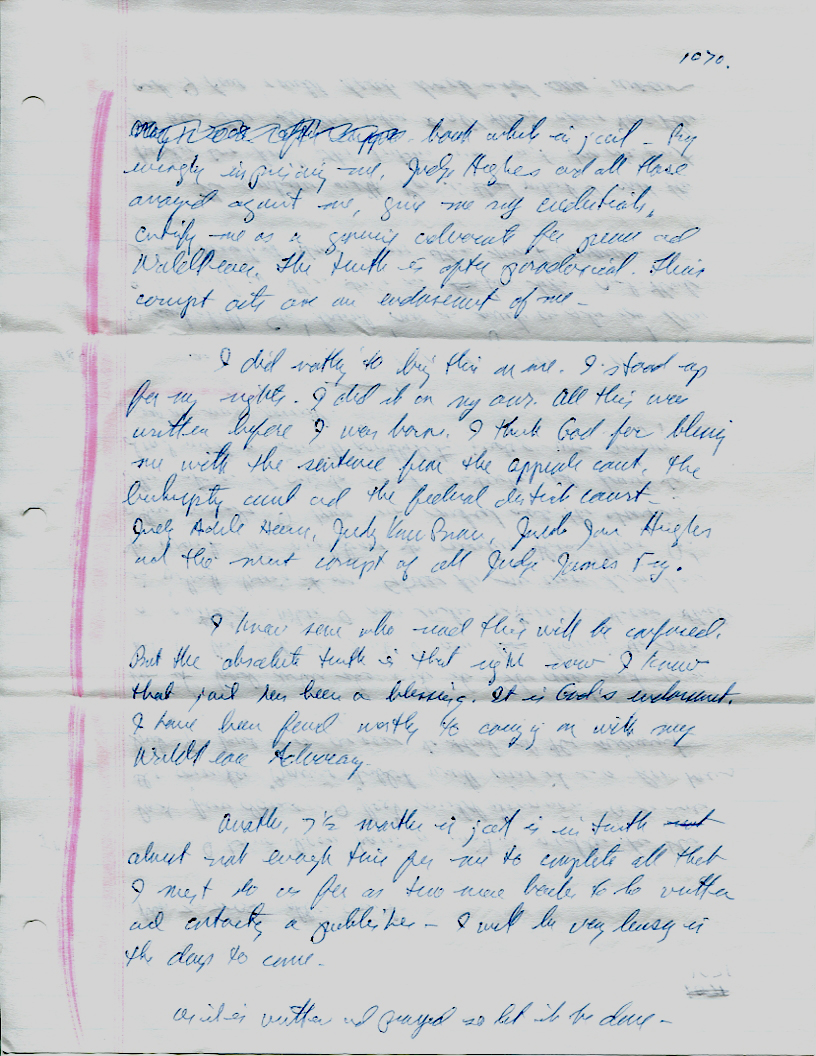 1070.
book while in jail - By
wrongly imprisoning me, Judge Hughes and all those
arrayed against me, give me my credentials,
certify me as a genuine advocate for peace and
WorldPeace. The truth is often paradoxical. Their
corrupt acts are an endorsement of me -
I did nothing to bring this on me. I stood up
for my rights. I did it on my own. All this was
written before I was born. I thank God for blessing
me with the sentence from the appeals court, the
bankruptcy court and the federal district court -
Judge Adele Hedges, Judge Karen Brown, Judge Lynn Hughes
and the most corrupt of all Judge James Fry.
I know some who read this will be confused.
But the absolute truth is that right now I know
that jail has been a blessing. It is God's endorsement.
I have been found worthy to carry on with my
WorldPeace Advocacy.
Another, 7½ months in jail is in truth
almost not enough time for me to complete all that
I must do as far as two more books to be written
and contacting a publisher - I will be very busy in
the days to come -
As it is written and prayed so let it be done -